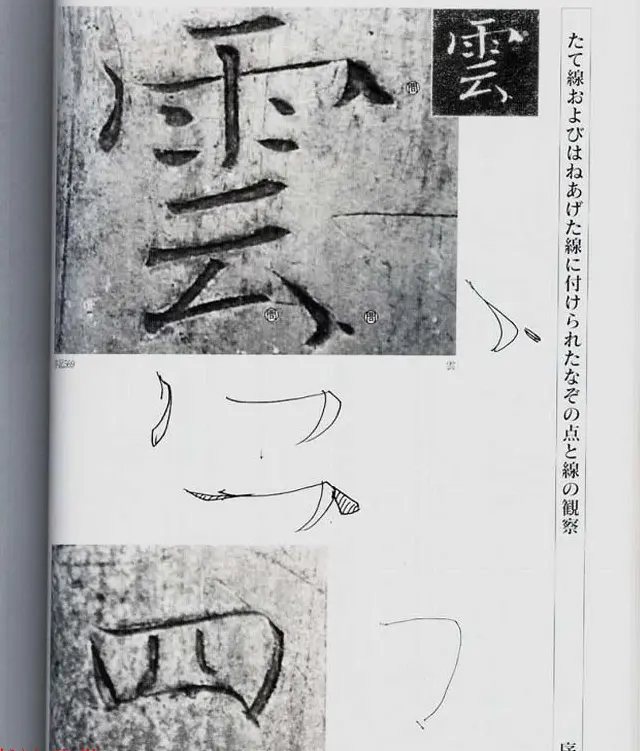 たて線およびはねあげた線に付けられたなぞの点と線の観察
序
雲
雲
雲
四